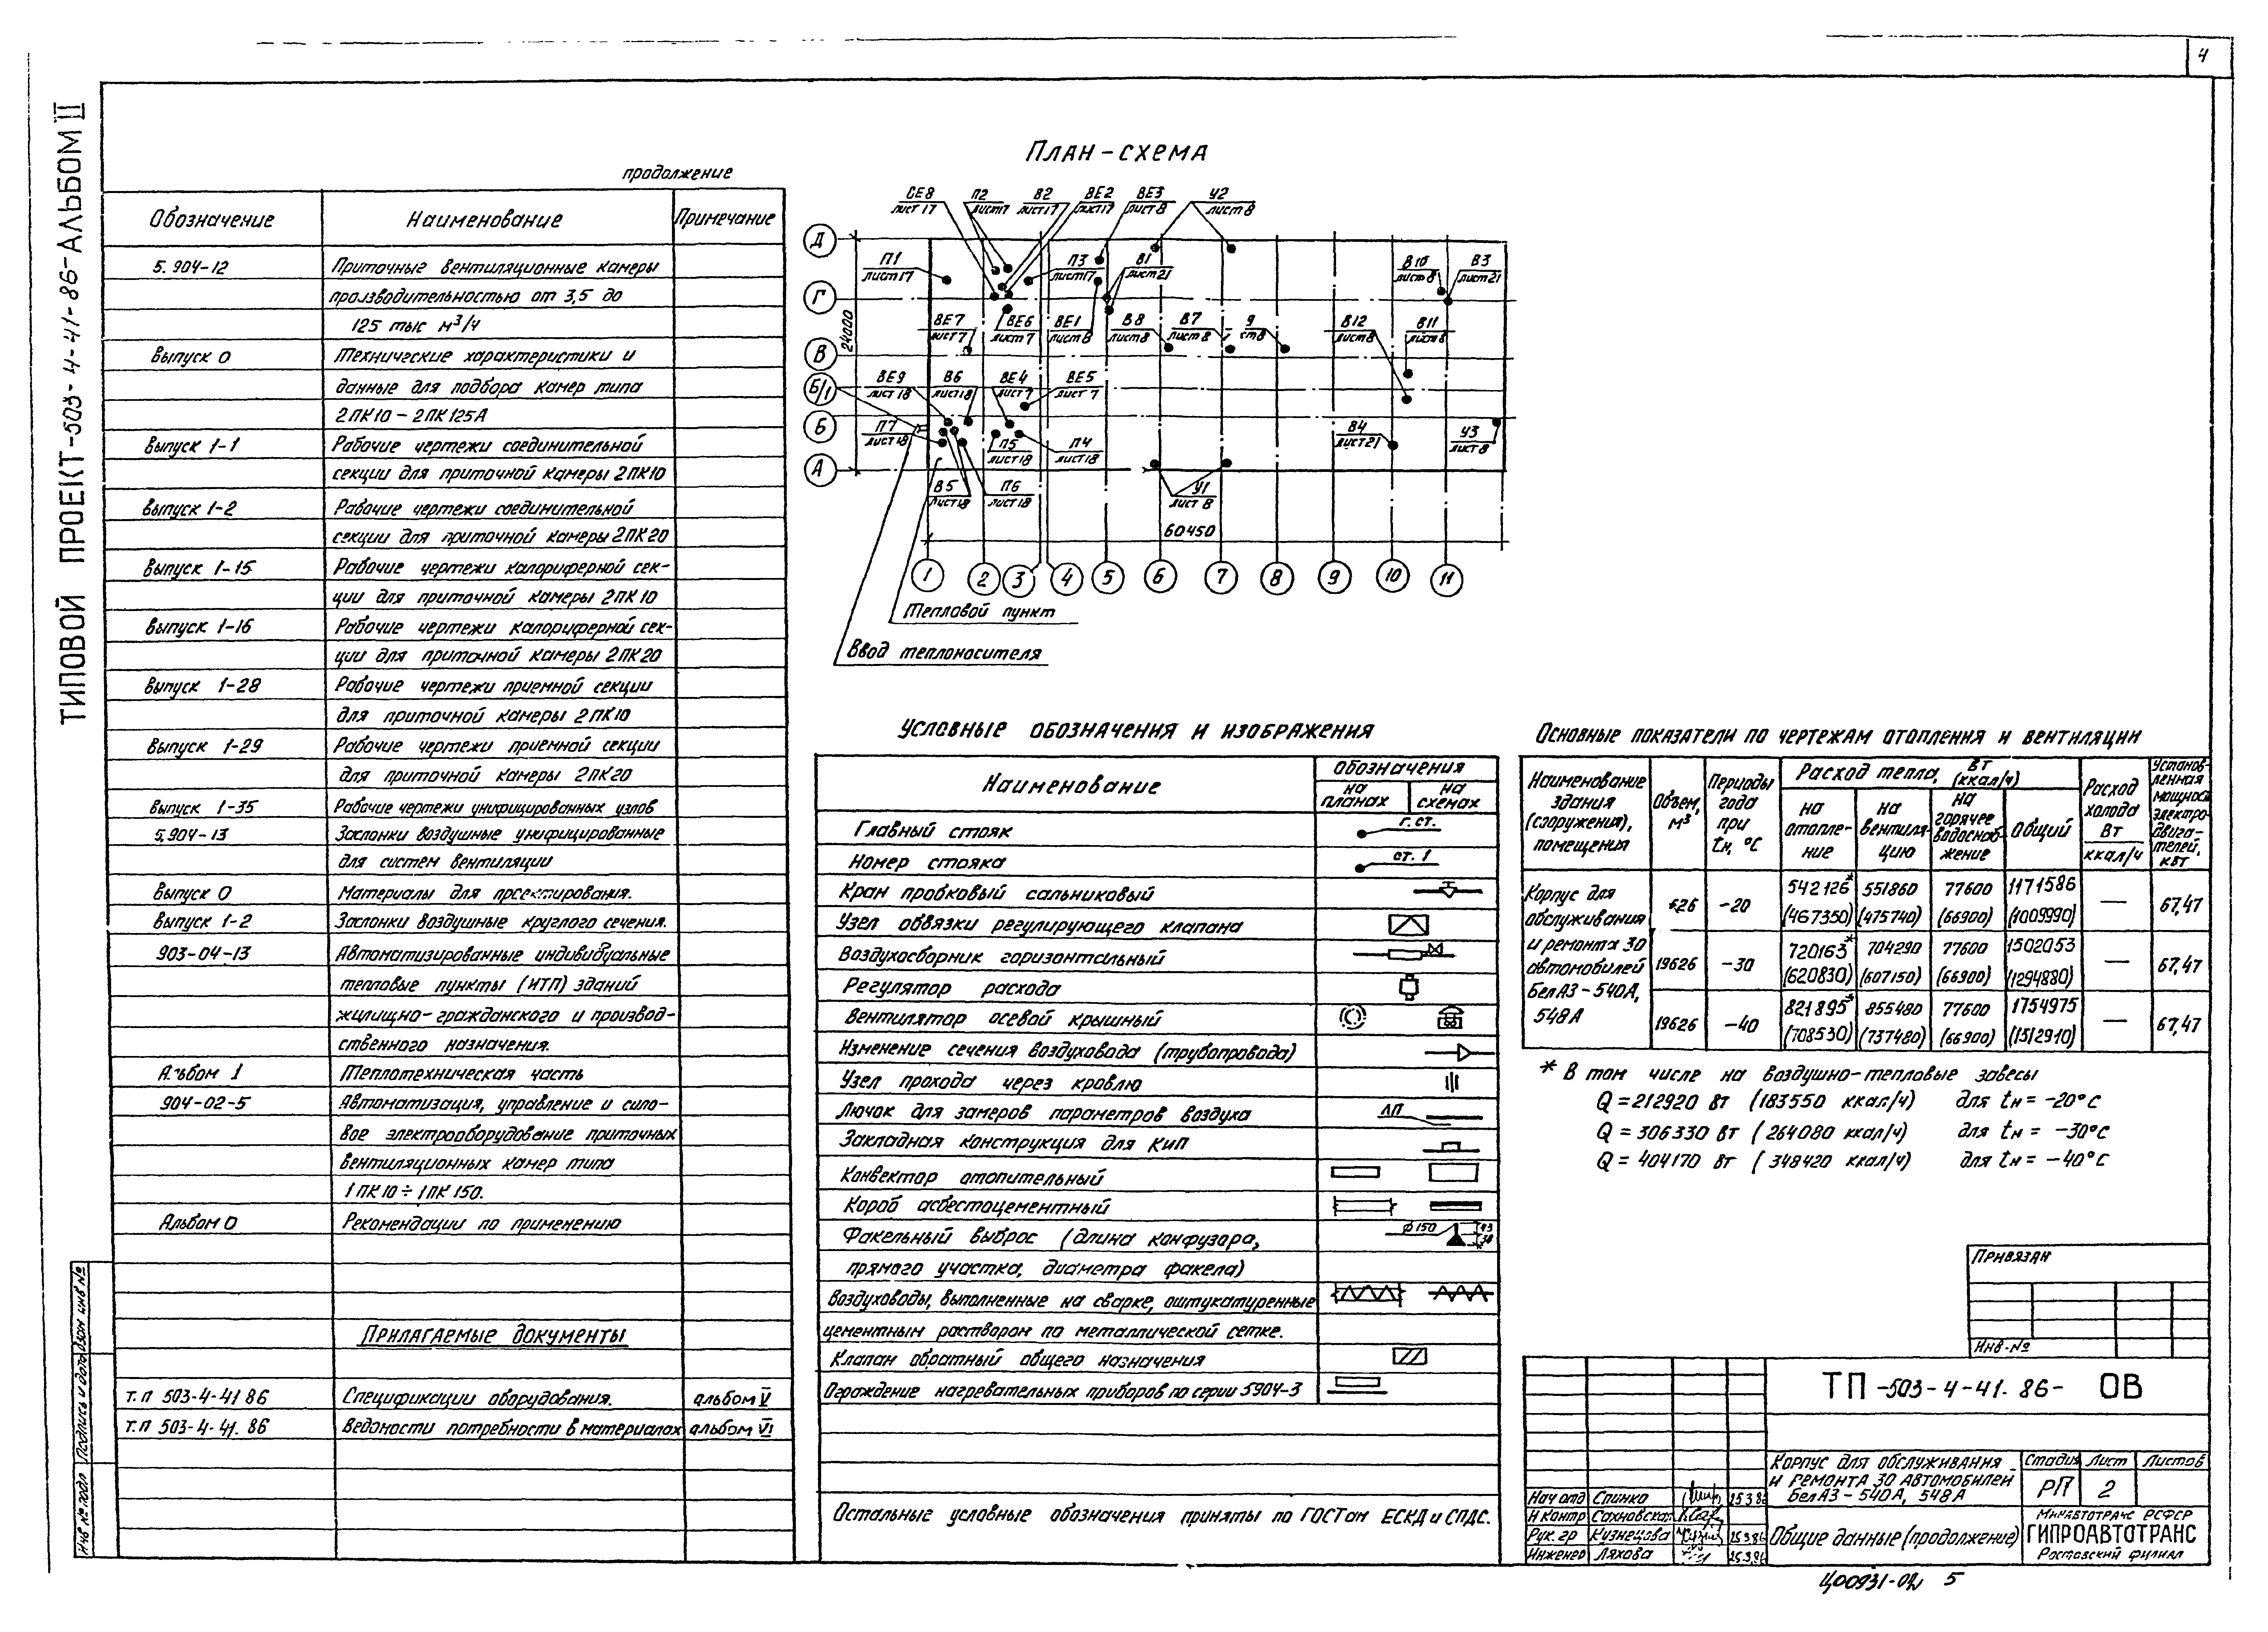 4
ТИПОВОЙ ПРОЕКТ-503-4-41-86-АЛЬБОМ II
продолжение
Обозначение Наименование Примечание
5.904-12 Приточные вентиляционные камеры
производительностью от 3,5 до
125 тыс м³/ч
Выпуск 0 Технические характеристики и
данные для подбора камер типа
2ПК10-2ПК125А
Выпуск 1-1 Рабочие чертежи соединительной
секции для приточной камеры 2ПК10
Выпуск 1-2 Рабочие чертежи соединительной
секции для приточной камеры 2ПК20
Выпуск 1-15 Рабочие чертежи калориферной сек-
ции для приточной камеры 2ПК10
Выпуск 1-16 Рабочие чертежи калориферной сек-
ции для приточной камеры 2ПК20
Выпуск 1-28 Рабочие чертежи приемной секции
для приточной камеры 2ПК10
Выпуск 1-29 Рабочие чертежи приемной секции
для приточной камеры 2ПК20
Выпуск 1-35 Рабочие чертежи унифицированных узлов
5.904-13 Заслонки воздушные унифицированные
для систем вентиляции
Выпуск 0 Материалы для проектирования.
Выпуск 1-2 Заслонки воздушные круглого сечения.
903-04-13 Автоматизированные индивидуальные
тепловые пункты (ИТП) зданий
жилищно-гражданского и производ-
ственного назначения.
Альбом 1 Теплотехническая часть
904-02-5 Автоматизация, управление и сило-
вое электрооборудование приточных
вентиляционных камер типа
1ПК10÷1ПК150.
Альбом 0 Рекомендации по применению
Прилагаемые документы
т.п 503-4-41 86 Спецификации оборудования. альбом V
т.п 503-4-41. 86 Ведомости потребности в материалах альбом VI
План-схема
П2 В2 ВЕ2 ВЕ3 У2
лист 17 лист17 лист17 лист17 лист 8 лист 8
Д
П1 П3 В1 В10 В3
лист17 лист17 лист21 лист 8 лист21
Г
24000
ВЕ7 ВЕ6 ВЕ1 В8 В7 9 В12 В11
лист 7 лист 7 лист 8 лист8 лист 8 ст8 лист8 лист8
В
ВЕ9 В6 ВЕ4 ВЕ5
лист 18 лист18 лист 7 лист 7
Б/1
Б
П7 П5 П4 В4 У3
лист 18 лист18 лист18 лист21 лист 8
А
В5 П6 У1
лист18 лист18 лист 8
60450
1 2 3 4 5 6 7 8 9 10 11
Тепловой пункт
Ввод теплоносителя
Условные обозначения и изображения
Наименование Обозначения
на планах на схемах
Главный стояк г. ст.
Номер стояка ст. 1
Кран пробковый сальниковый
Узел обвязки регулирующего клапана
Воздухосборник горизонтальный
Регулятор расхода
Вентилятор осевой крышный
Изменение сечения воздуховода (трубопровода)
Узел прохода через кровлю
Лючок для замеров параметров воздуха ЛП
Закладная конструкция для КИП
Конвектор отопительный
Короб асбестоцементный
Факельный выброс (длина конфузора, ф150
прямого участка, диаметра факела)
Воздуховоды, выполненные на сварке, оштукатуренные
цементным раствором по металлической сетке.
Клапан обратный общего назначения
Ограждение нагревательных приборов по серии 5904-3
Остальные условные обозначения приняты по ГОСТам ЕСКД и СПДС.
Основные показатели по чертежам отопления и вентиляции
Наименование здания (сооружения), помещения Объем, м³ Периоды года при tн, °С Расход тепла, Вт (ккал/ч) Расход холода Вт ккал/ч Установленная мощность электродвигателей, кВт
на отопле-ние на вентиля-цию на горячее водоснаб-жение Общий
Корпус для обслуживания и ремонта 30 автомобилей БелАЗ-540А, 548А
626 -20 542126* 551860 77600 1171586 — 67,47
(467350) (475740) (66900) (1009990)
19626 -30 720163* 704290 77600 1502053 — 67,47
(620830) (607150) (66900) (1294880)
19626 -40 821895* 855480 77600 1754975 — 67,47
(708530) (737480) (66900) (1512910)
* В том числе на воздушно-тепловые завесы
Q=212920 Вт (183550 ккал/ч) для tн= -20°С
Q= 306330 Вт (264080 ккал/ч) для tн= -30°С
Q= 404170 Вт (348420 ккал/ч) для tн= -40°С
Привязан
Инв.№
ТП-503-4-41. 86- ОВ
Корпус для обслуживания
и ремонта 30 автомобилей
БелАЗ-540А, 548А
Стадия Лист Листов
РП 2
Нач отд Спинко 25.3.86
Н контр Сахновская
Рук. гр Кузнецова 25.3.86
Инженер Ляхова 25.3.86
Общие данные (продолжение)
Минавтотранс РСФСР
ГИПРОАВТОТРАНС
Ростовский филиал
Инв № подл Подпись и дата Взам инв №
Ц00931-02 5